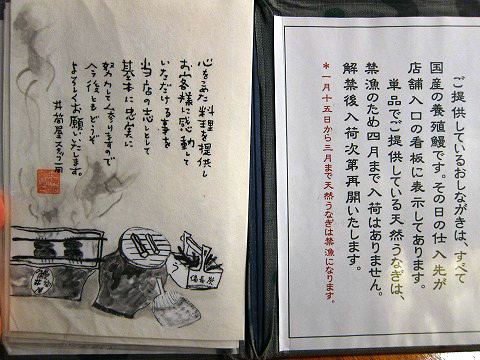 心をこめた料理を提供し
お客様に感動して
いただける事を
当店の志として
基本に忠実に
努力して参りますので
今後ともどうぞ
よろしくお願いいたします。
井筒屋スタッフ一同
備長炭
ご提供しているおしながきは、すべて
国産の養殖鰻です。その日の仕入先が
店舗入口の看板に表示してあります。
単品でご提供している天然うなぎは、
禁漁のため四月まで入荷はありません。
解禁後入荷次第再開いたします。
＊一月十五日から三月まで天然うなぎは禁漁になります。